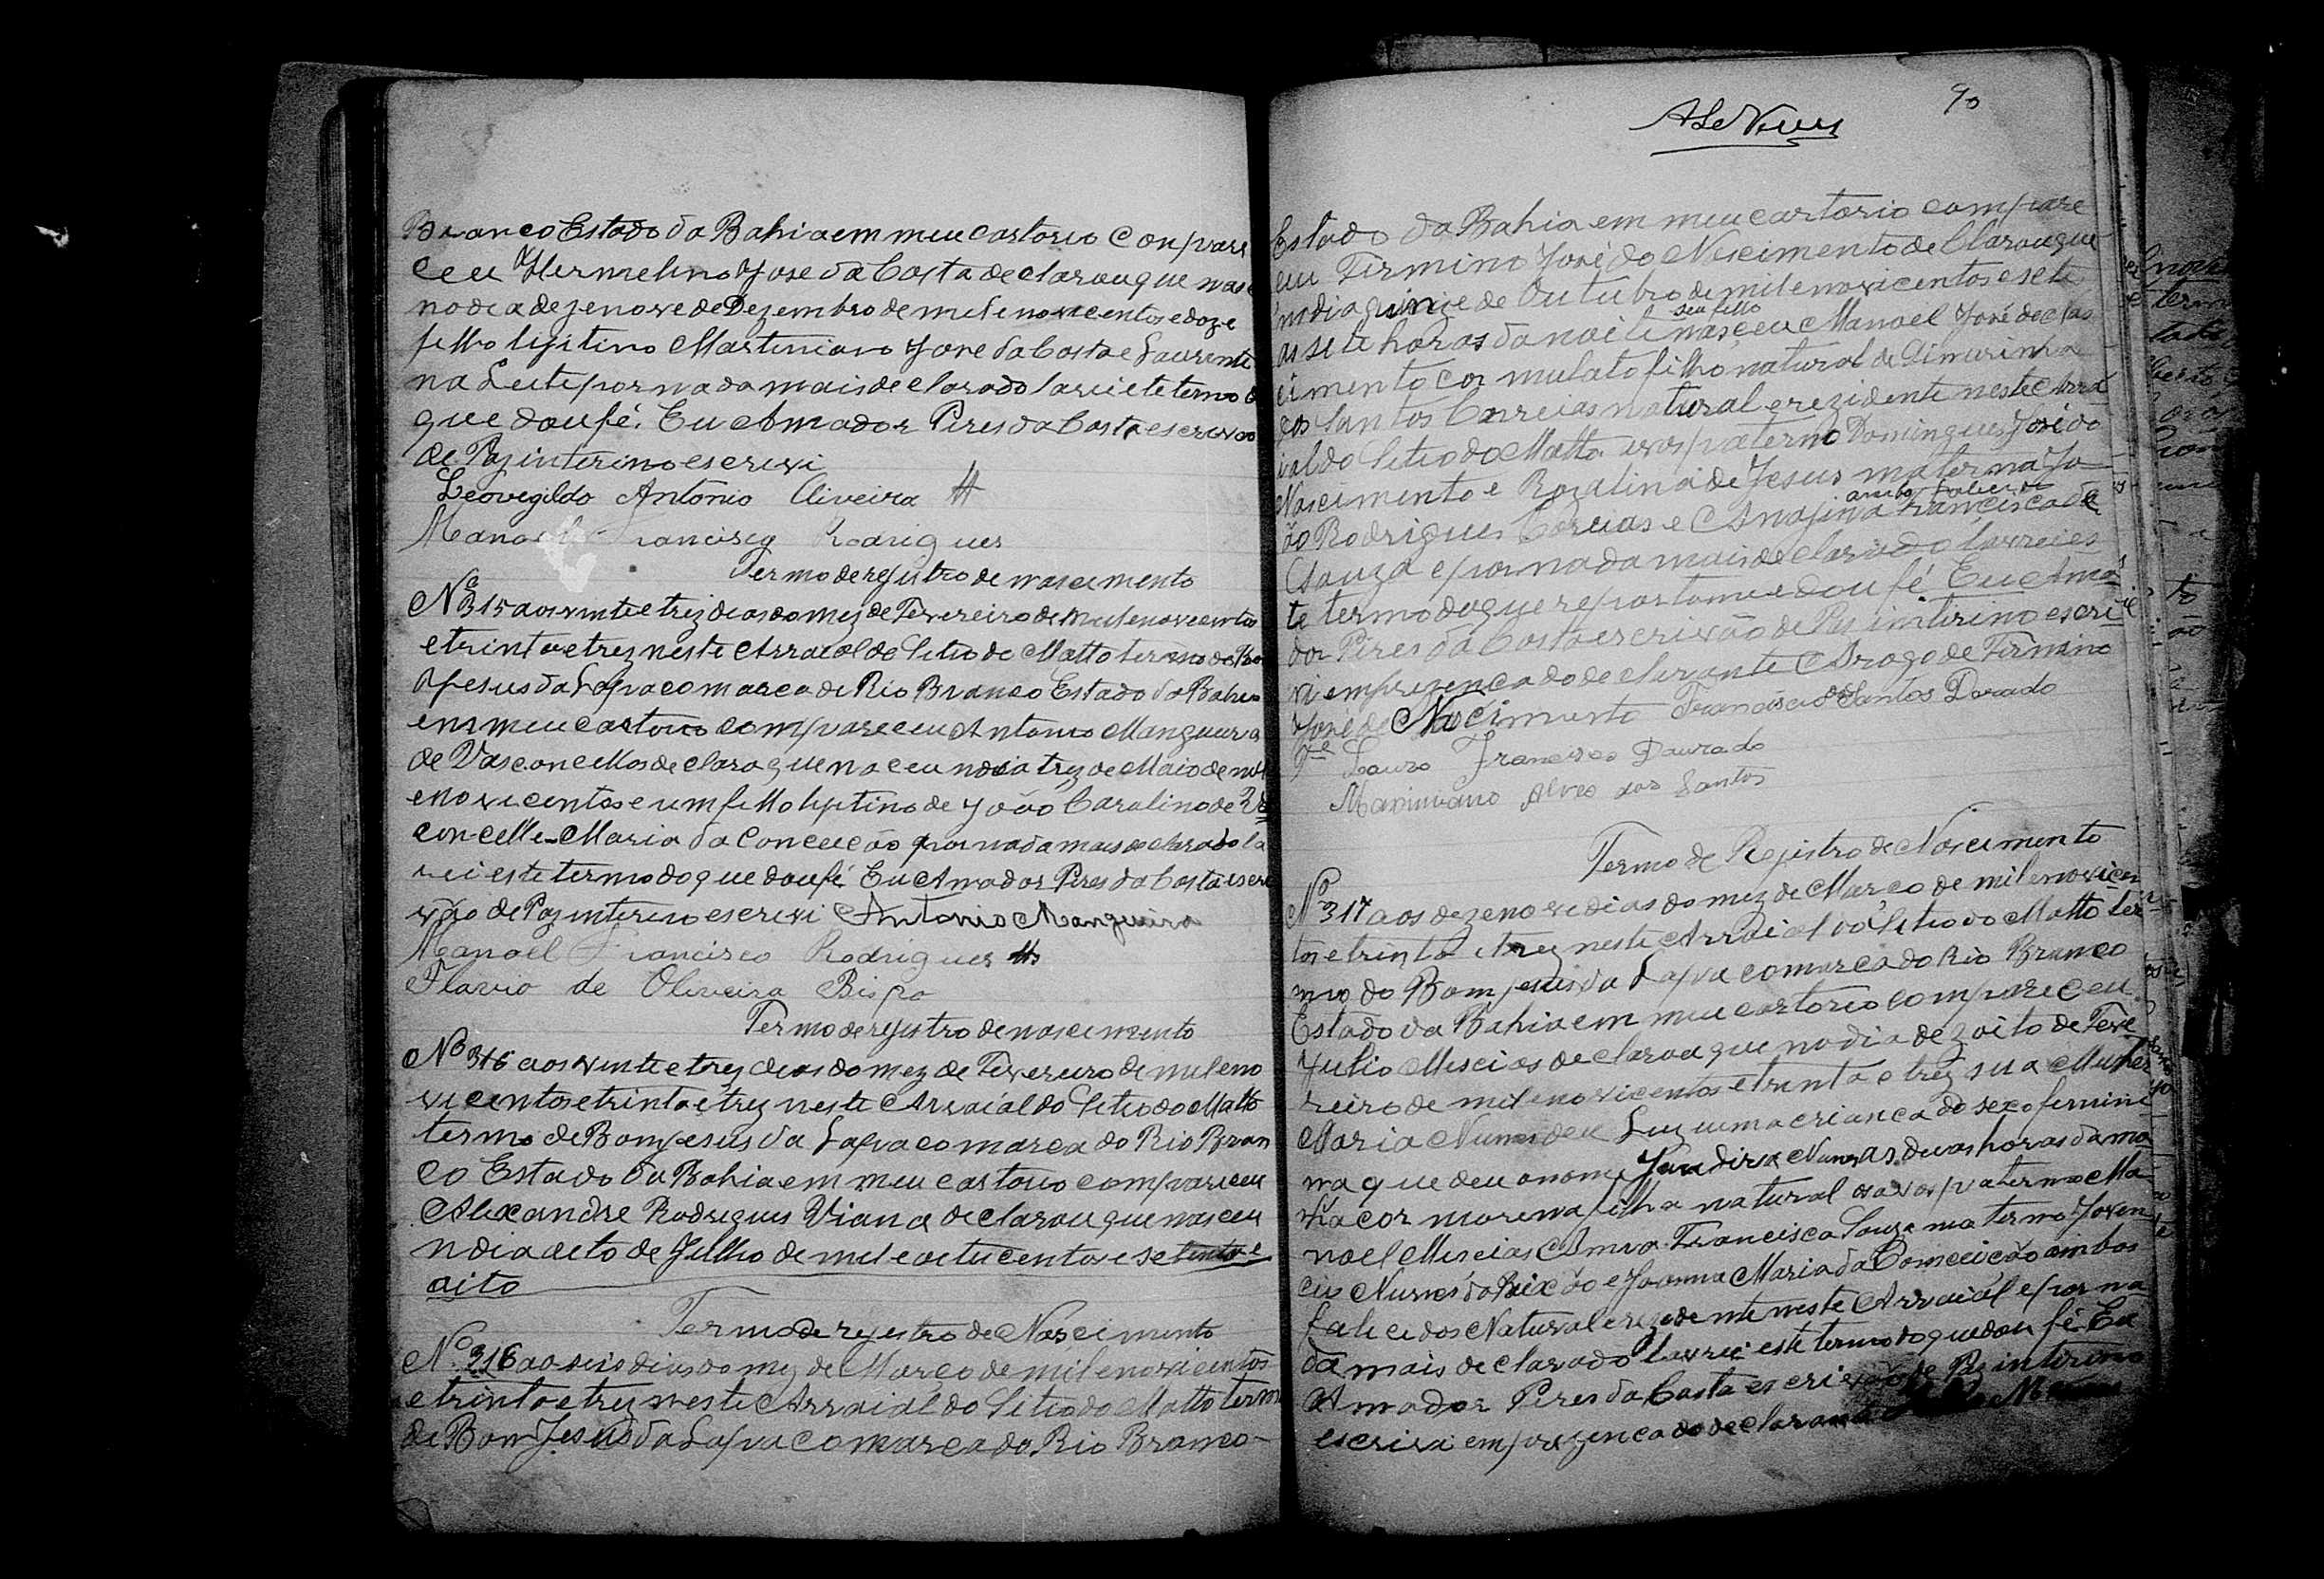 Branco Estado da Bahia em meu cartorio Compare
ceu Hermelino Jose da Costa declarou que nasc
no dia dezenove de Dezembro de mil enovecentos e doze
filho ligitino Martiniano Jose da Costa e Laurenti
na Leite por nada mais declarado lavei ete termo d
que dou fé. Eu Amador Pires da Costa escrivão
de Paz interino escrevi
Leovegildo Antonio Oliveira
Manoel Francisco Rodrigues
Termo de registro de nascimento
Nº 315 aos vinte e trez dias do mez de Fevereiro de mil enovecentos
e trinta e trez neste Arraial do Sitio do Matto termo de Bo
Jesus da Lapa comarca de Rio Branco Estado da Bahia
em meu cartorio compareceu Antonio Mangueira
de Vasconcellos declaro que naceu no dia trez de Maio de mil
enovecentos e um filho ligitino de João Carolino de Vas
concelle Maria da Conceicão por nada mais declarado la
vei este termo do que dou fé Eu Amador Pires da Costa escre
vão de Paz interino escrevi Antonio Mangueira
Manoel Francisco Rodrigues
Flavio de Oliveira Bispo
Termo de registro de nascimento
Nº 316 aos vinte e trez dias do mez de Fevereiro de mil eno
vecentos e trinta e trez neste Arraial do Sitio do Matto
termo de Bom Jesus da Lapa comarca do Rio Bran
co Estado da Bahia em meu cartorio compareceu
Alexandre Rodrigues Viana declarou que nasceu
no dia oito de Julho de mil e oitucentos e setenta e
oito
Termo de registro de Nascimento
Nº 316 aos seis dias do mez de Março de mil enovecentos
e trinta e trez neste Arraial do Sitio do Matto termo
de Bom Jesus da Lapa comarca do Rio Branco
90
Estado da Bahia em meu cartorio compare
ceu Firmino José do Nascimento declarou que
no dia quinze de Outubro de mil enovecentos e sete
as sete horas da noite nasceu seu filho Manoel José do Nas
cimento cor mulato filho natural de
dos Santos Correias natural e rezidente neste Arra
ial do Sitio do Matto avos paterno Domingues José do
Nascimento e Rozalina de Jesus materna Jo
ão Rodrigues Correias e Francisca de
Souza e por nada mais declarado lavrei es
te termo do que reportome e dou fé. Eu Ama
dor Pires da Costa escrivão de Paz interino escri
vi em prezenca do declarante A Rogo de Firmino
José do Nacimento Francisco dos Santos Dorado
Lauro Francisco Dourado
Maximiano Alves dos Santos
Termo de Registro de Nascimento
Nº 317 aos dezenove dias do mez de Março de mil enovecen
tos e trinta e trez neste Arraial do Sitio do Matto ter
mo do Bom Jesus da Lapa comarca do Rio Branco
Estado da Bahia em meu cartorio compareceu
Julio Mescias declarou que no dia dezoito de Feve
reiro de mil enovecentos e trinta e trez sua Mulher
Maria Nunes deu Luz uma crianca do sexo femini
na que deu o nome Jandira Nunes as duas horas da ma
nhã cor morena filha natural os avos paterno Ma
noel Mescias Anna Francisca Souza materno Joven
cio Nunes da Paixão e Joanna Maria da Conceicão ambos
falecidos Natural e rezidente neste Arraial e por na
da mais declarado lavrei este termo do que dou fé Eu
Amador Pires da Costa escrivão de Paz interino
escrivi em prezenca do declarante